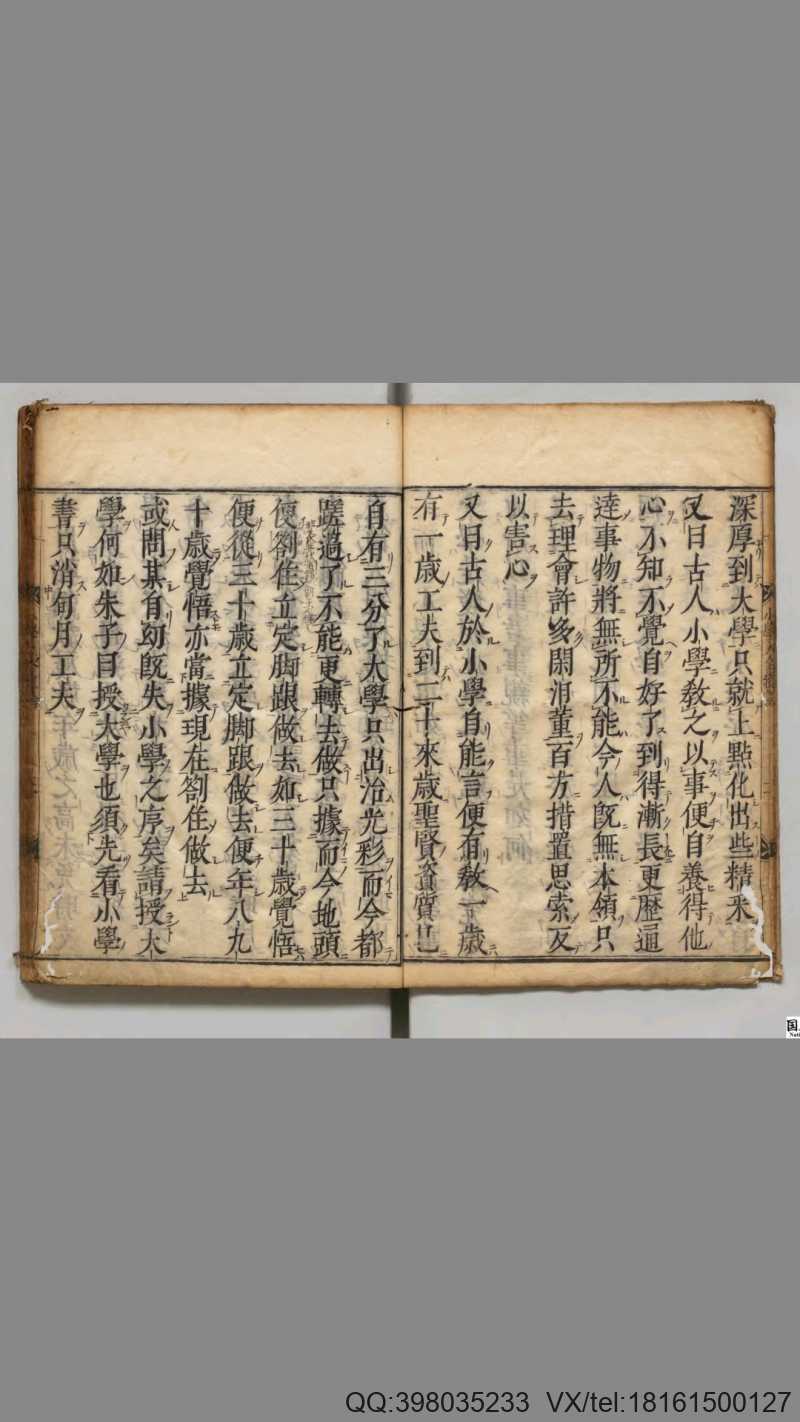 深厚到大學只就上點化出些精采
又曰古人小學敎之以事便自養得他
心不知不覺自好了到得漸長更歷通
達事物將無所不能今人旣無本領只
去理會許多閑汨董百方措置思索反
以害心
又曰古人於小學自能言便有敎一歲
有一歲工夫到二十來歲聖賢資質已
自有三分了大學只出治光彩而今都
蹉過了不能更轉去做只據而今地頭
便劄住立定脚跟做去如三十歲覺悟
便從三十歲立定脚跟做去便年八九
十歲覺悟亦當據現在劄住做去
或問某自幼旣失小學之序矣請授大
學何如朱子曰授大學也須先看小學
書只消旬月工夫
国
QQ:398035233 VX/tel:18161500127